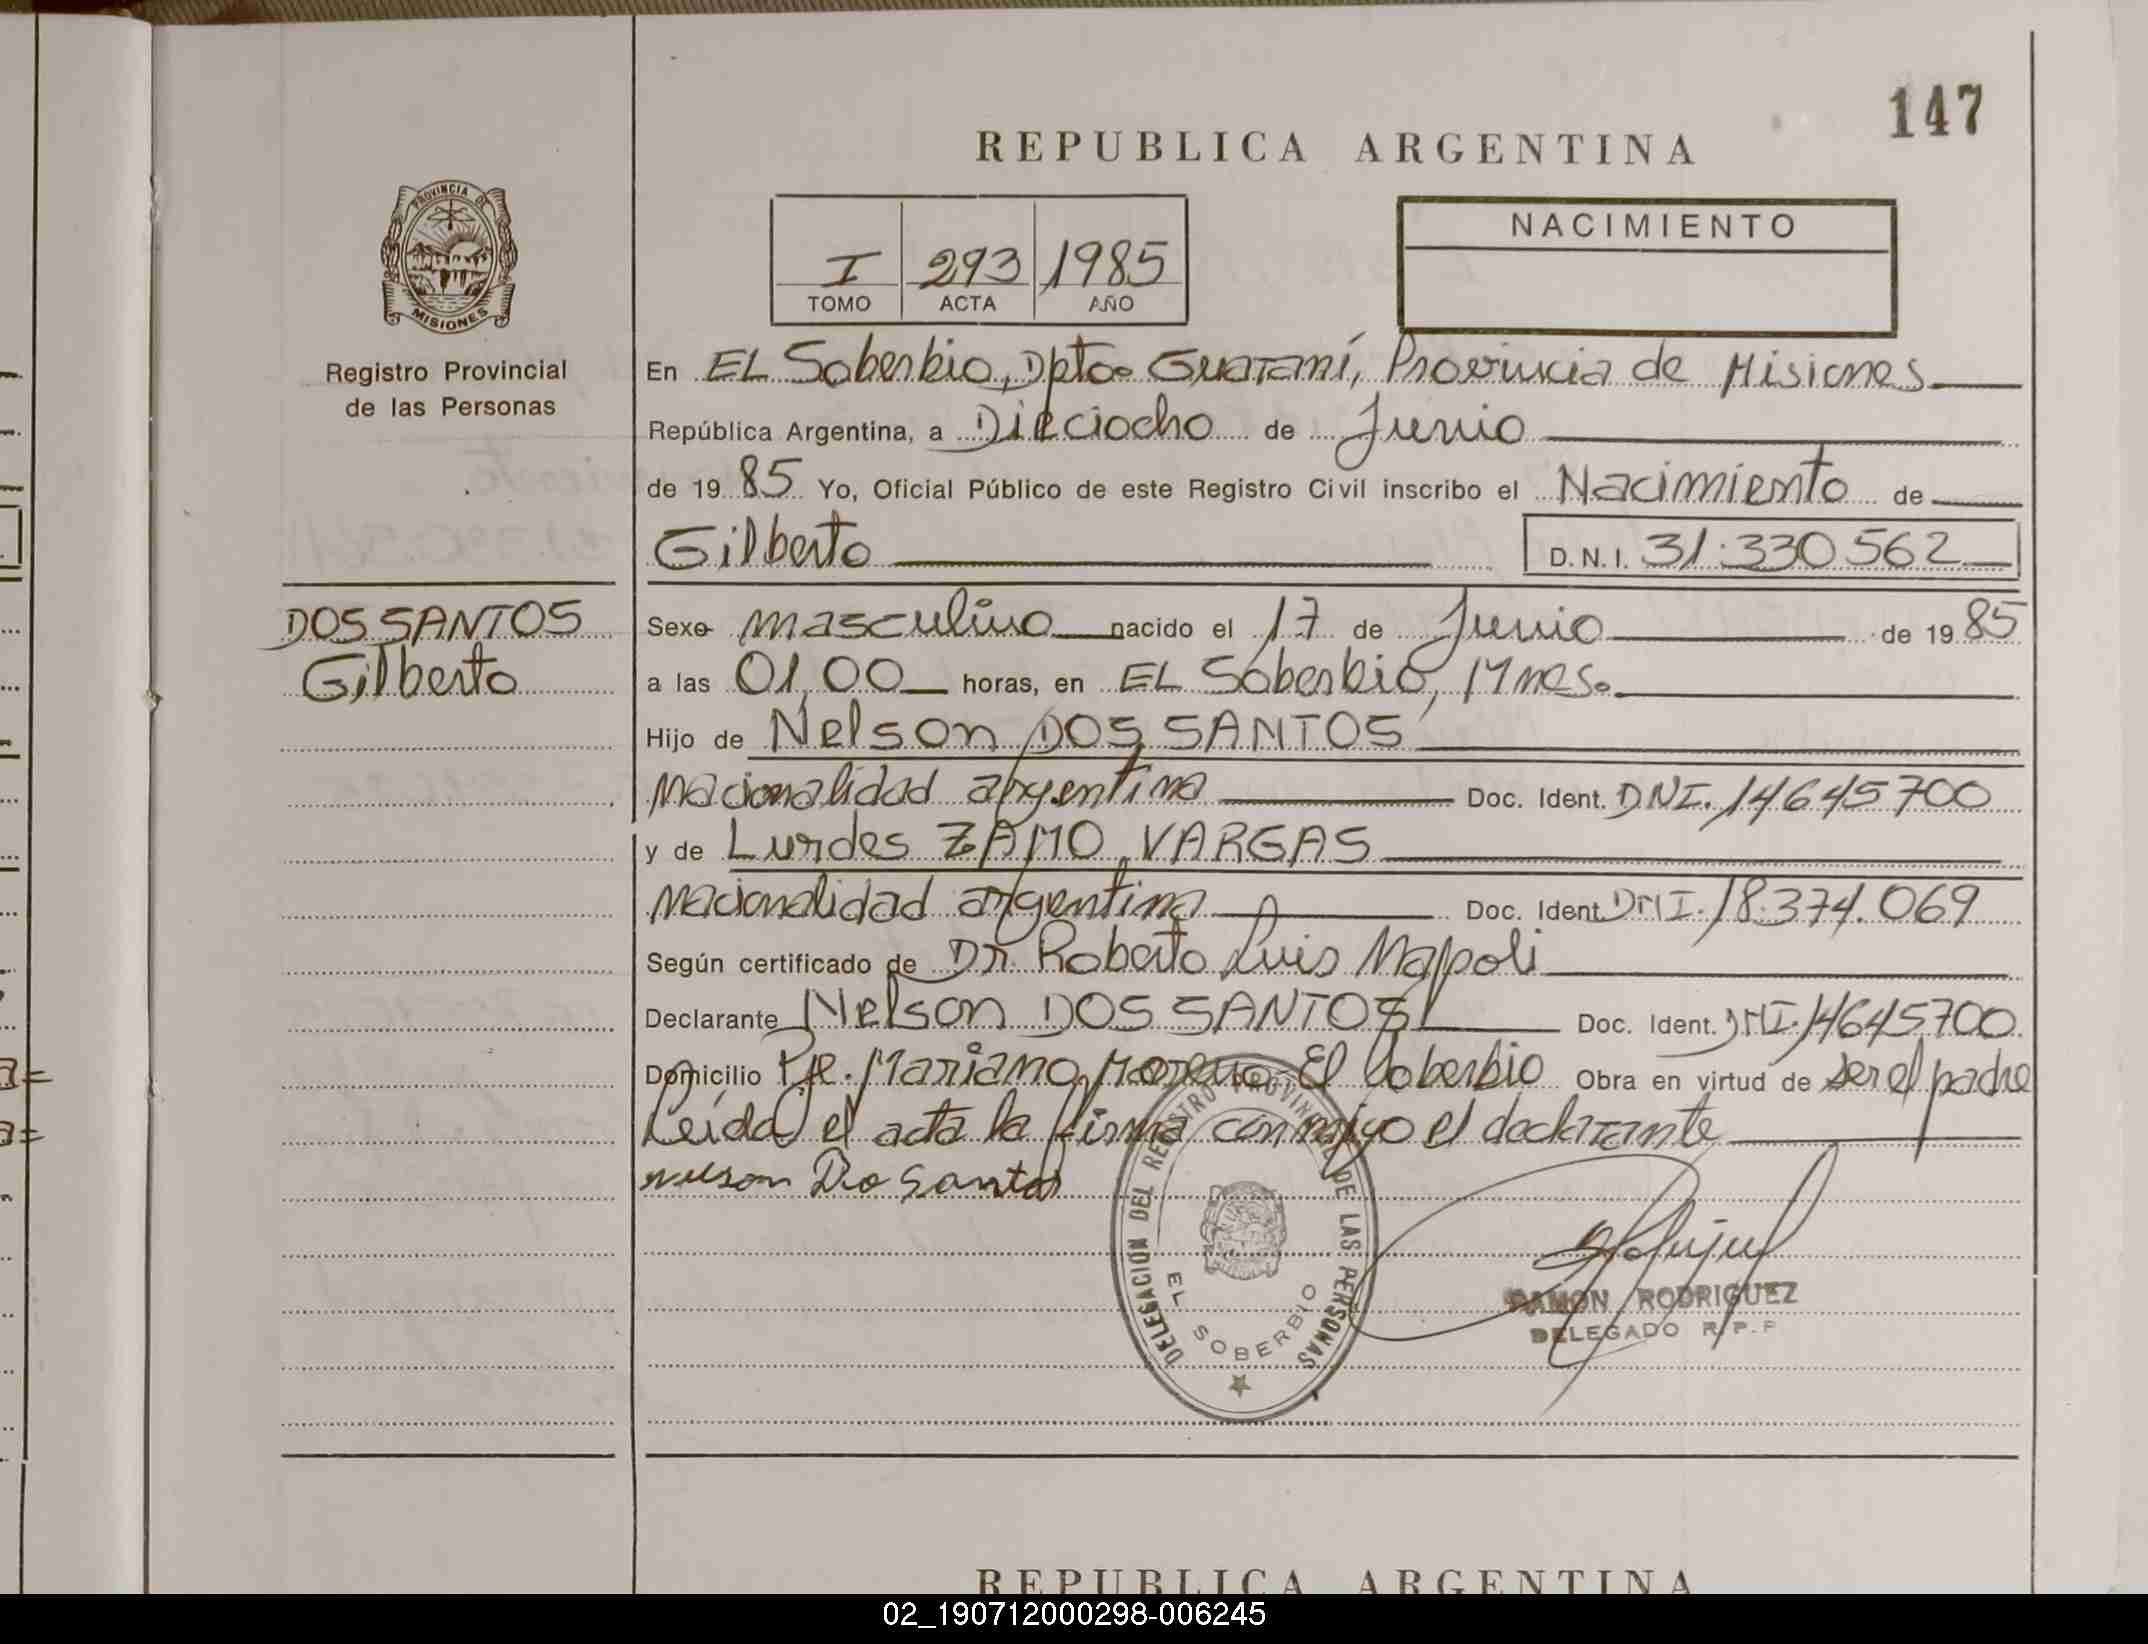 147
REPUBLICA ARGENTINA
PROVINCIA DE
MISIONES
Registro Provincial
de las Personas
I 293 1985
TOMO ACTA AÑO
NACIMIENTO
En EL Soberbio, Dpto. Guaraní, Provincia de Misiones
República Argentina, a Dieciocho de Junio
de 1985 Yo, Oficial Público de este Registro Civil inscribo el Nacimiento de
Gilberto D.N.I. 31.330562
DOS SANTOS
Gilberto
Sexo masculino nacido el 17 de Junio de 1985
a las 01,00 horas, en EL Soberbio, Mnes.
Hijo de Nelson DOS SANTOS
Nacionalidad argentina Doc. Ident. DNI. 14645700
y de Lurdes ZAMO VARGAS
Nacionalidad argentina Doc. Ident DNI. 18.374.069
Según certificado de Dr. Roberto Luis
Declarante Nelson DOS SANTOS Doc. Ident. DNI. 14645700
Domicilio Pje. Mariano Moreno El Soberbio Obra en virtud de ser el padre
Leída el acta la firma conmigo el declarante
DELEGACION DEL REGISTRO PROVINCIAL DE LAS PERSONAS
EL SOBERBIO
RAMON RODRIGUEZ
DELEGADO R.P.P
REPUBLICA ARGENTINA
02_190712000298-006245